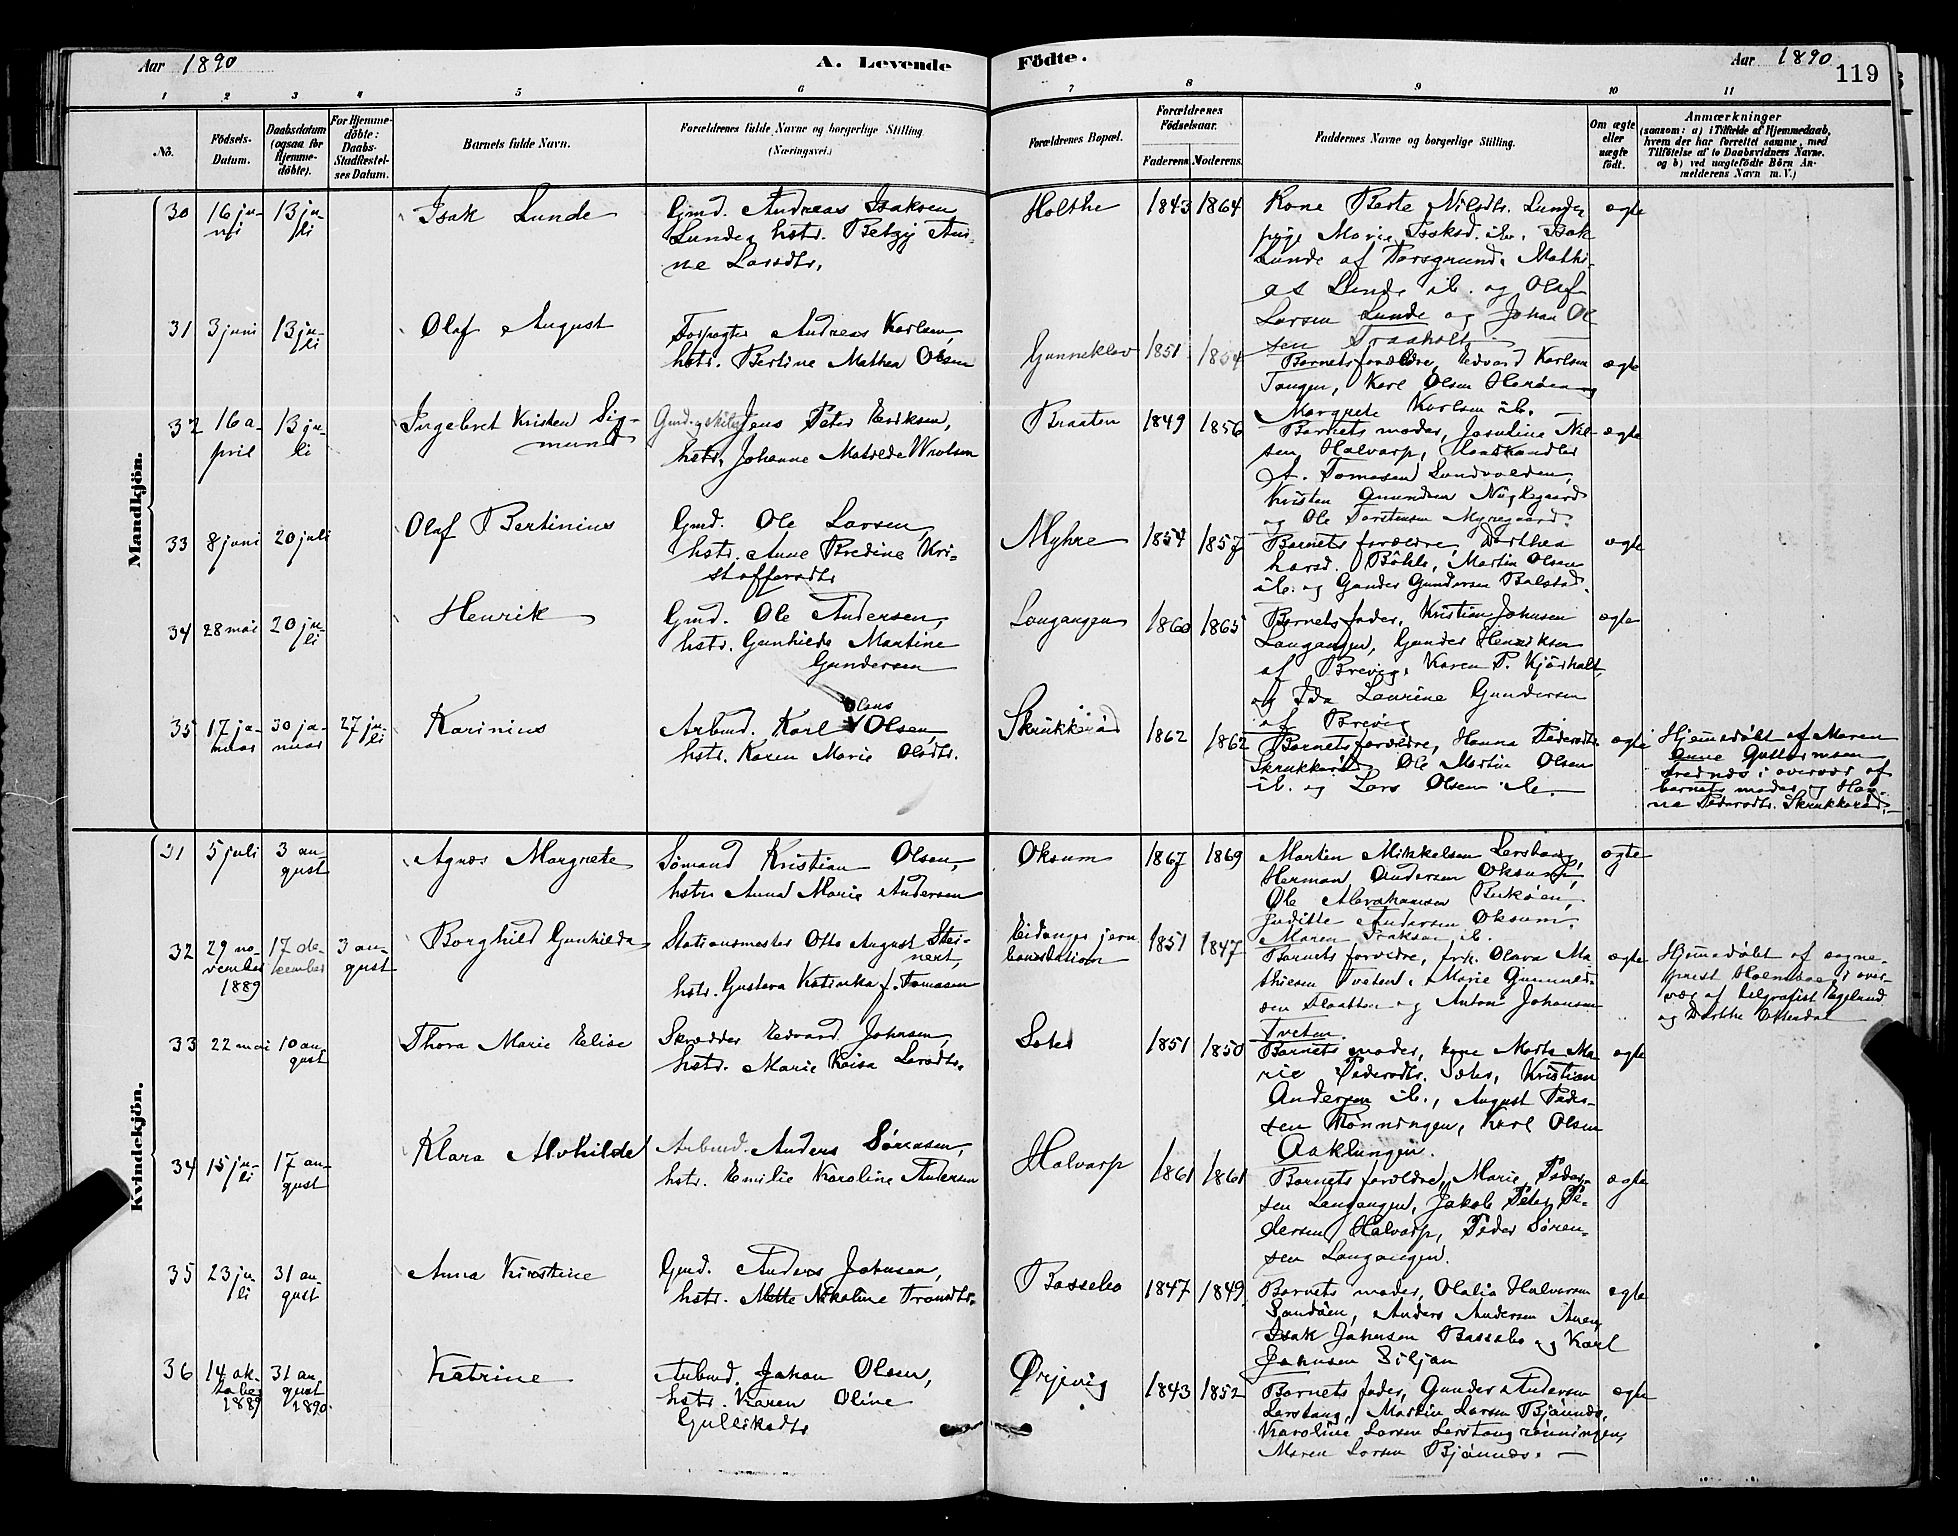 Aar 1890
A. Levende Födte.
Aar 1890
119
1 2 3 4 5 6 7 8 9 10 11
No.
Födsels-
Datum.
Daabsdatum
(ogsaa for
Hjemme-
döbte).
For Hjemme-
döbte:
Daabs-
Stadfæstel-
ses Datum.
Barnets fulde Navn.
Forældrenes fulde Navne og borgerlige Stilling
(Næringsvei.)
Forældrenes Bopæl.
Forældrenes
Födselsaar.
Faderens. Moderens.
Faddernes Navne og borgerlige Stilling.
Om ægte
eller
uægte
födt.
Anmærkninger
(saasom: a) i Tilfælde af Hjemmedaab,
hvem der har forrettet samme, med
Tilföielse af to Daabsvidners Navne,
og b) ved uægtefödte Börn An-
melderens Navn m. V.)
Mandkjön.
30
16 ju-
ni
13 ju-
li
Isak Lunde
Gmd. Andreas Isaksen
Lunde, hstr. Betzy An-
ne Larsdtr.
Holthe
1843 1864
Kone Berte Nilsdtr. Lunde,
pige Marie Isaksd. ib., Isak
Lunde af Porsgrund, Mathi-
as Lunde ib. og Olaf
Larsen Lunde og Johan Ol
sen Traaholt
ægte
31
3 juni
13 ju-
li
Olaf August
Forpagter Andreas Karlsen,
hstr. Bertine Mathea Olsen
Gunneklev
1851 1854
Barnets forældre, Edvard Karlsen
Tangen, Karl Olsen Herøen og
Margrete Karlsen ib.
ægte
32
16 a-
pril
13 ju-
li
Ingebret Kristen Sig-
mund
Jens Peter Eriksen,
hstr. Johanne Matilde Wrolsen
Braaten
1849 1856
Barnets moder, Nil-
sen Halvarp,
A. Tomasen Sundvolden,
Kristen Amundsen Nygaard
og Ole Torstensen Myregaard.
ægte
33
8 juni
20 juli
Olaf Bertinius
Gmd. Ole Larsen,
hstr. Anne Bredine Kri-
stoffersdtr
Myhre
1854 1857
Barnets forældre, Dorthea
harsd. Böhle, Martin Olsen
ib. og Gunder Gundersen Balstad.
ægte
34
28 mai
20 ju-
li
Henrik
Gmd. Ole Andersen,
hstr. Gunhilde Martine
Gundersen
Langangen
1860 1865
Barnets fader, Kristian Johnsen
Langangen, Gunder Henriksen
af Brevig, Karen P. Kjørholt,
og Ida Laurine Gundersen
af Brevig
ægte
35
17 ja-
nuar
30 ja-
nuar
27 ju-
li
Karinius
Arbmd. Karl Olaus Olsen
hstr. Karen Marie Olsdtr.
Skrukkerød
1862 1862
Barnets forældre, Hanna Pedersdtr.
Skrukkerød, Ole Martin Olsen
ib. og Lars Olsen ib.
ægte
Hjemmedøbt af Maren
Anne Guttormsen
Strednæs i overvær af
barnets moder og Han-
ne Pedersdtr. Skrukkerød.
Kvindekjön.
31
5 juli
3 au-
gust
Agnes Margrete
Sømand Kristian Olsen,
hstr. Anna Marie Andersen
Oksum
1867 1869
Martin Mikkelsen Lerstang,
Herman Andersen Oksum,
Ole Abrahamsen Birkøen,
Juditte Andersen Oksum,
Maren Isaksen ib.
ægte
32
29 no-
vember
1889
17 de-
cember
3 au-
gust
Borghild Gunhilda
Stationsmester Otto August Stei-
nert,
hstr. Gustava Katinka f. Tomasen
Eidanger jern
banestation
1851 1847
Barnets forældre, frk. Olava Ma-
thiesen Tveten, Marie Gunnerd-
sen Flaatten og Anton Johansen
Tveten
ægte
Hjemmedøbt af sogne-
prest Holmboe, i over-
vær af telgrafist Egeland
og Dorthe Ottersdal
33
22 mai
10 au-
gust
Thora Marie Elise
Skrædder Edvard Johnsen,
hstr. Marie Kaisa Larsdtr.
Soter
1851 1850
Barnets moder, kone Marte Ma-
rie Pedersdtr. Soter, Kristian
Andersen ib., August Peder-
sen Rønningen, Karl Olsen
Aaklungen.
ægte
34
15 ju-
li
17 au-
gust
Klara Alvhilde
Arbmd. Anders Sørensen,
hstr. Emilie Karoline Andersen
Halvarp
1861 1861
Barnets forældre, Marie Peder-
sen Langangen, Jakob Peter Pe-
dersen Halvarp, Peder Søren-
sen Langangen.
ægte
35
23 ju
li
31 au-
gust
Anna Kirstine
Gmd. Anders Johnsen,
hstr. Mette Nikoline Trondtr.
Bassebo
1847 1849
Barnets moder, Olalia Halvorsen
Sandøen, Anders Andersen Auen,
Isak Johnsen Bassebo og Karl
Johnsen Siljan
ægte
36
14 ok-
tober
1889
31 au-
gust
1890.
Katrine
Arbmd. Johan Olsen,
hstr. Karen Oline
Gulliksdtr
Ørjevig
1843 1852
Barnets fader, Gunder Andersen
Lerstang, Martin Larsen Bjønnæs,
Karoline Larsen Lerstang rønningen,
Maren Larsen Bjønnæs.
ægte